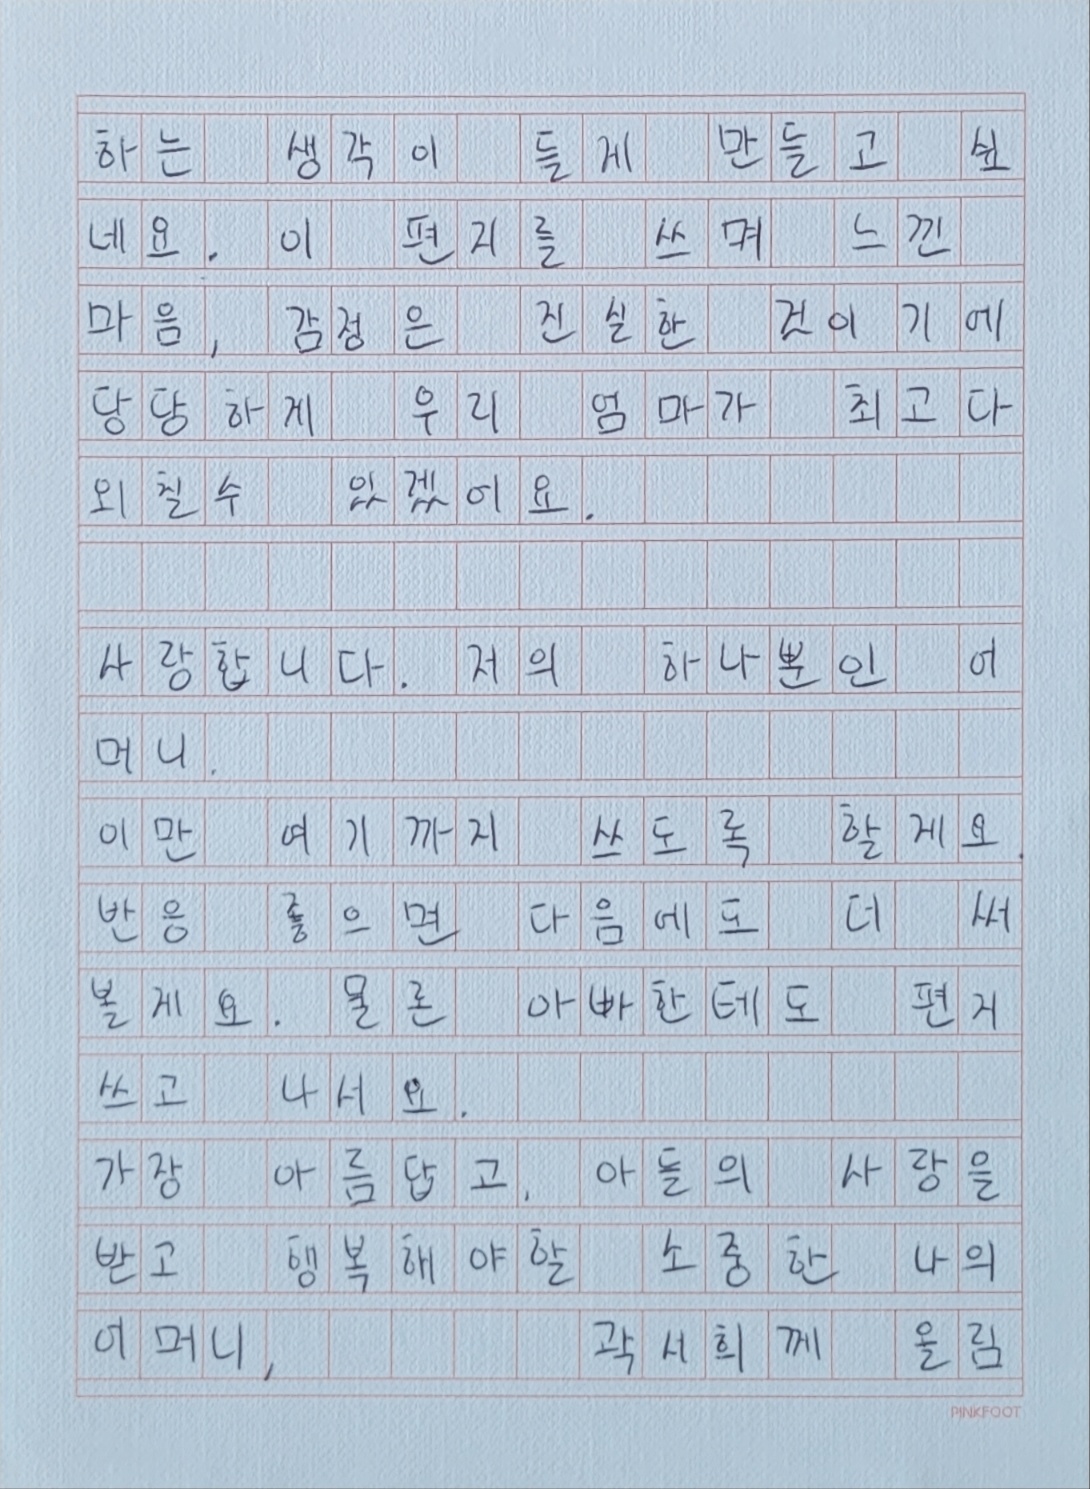 하는 생각이 들게 만들고 싶
네요. 이 편지를 쓰며 느낀
마음, 감정은 진실한 것이기에
당당하게 우리 엄마가 최고다
외칠수 있겠어요.
사랑합니다. 저의 하나뿐인 어
머니.
이만 여기까지 쓰도록 할게요.
반응 좋으면 다음에도 더 써
볼게요. 물론 아빠한테도 편지
쓰고 나서요.
가장 아름답고, 아들의 사랑을
받고 행복해야할 소중한 나의
어머니, 곽서희께 올림
PINKFOOT